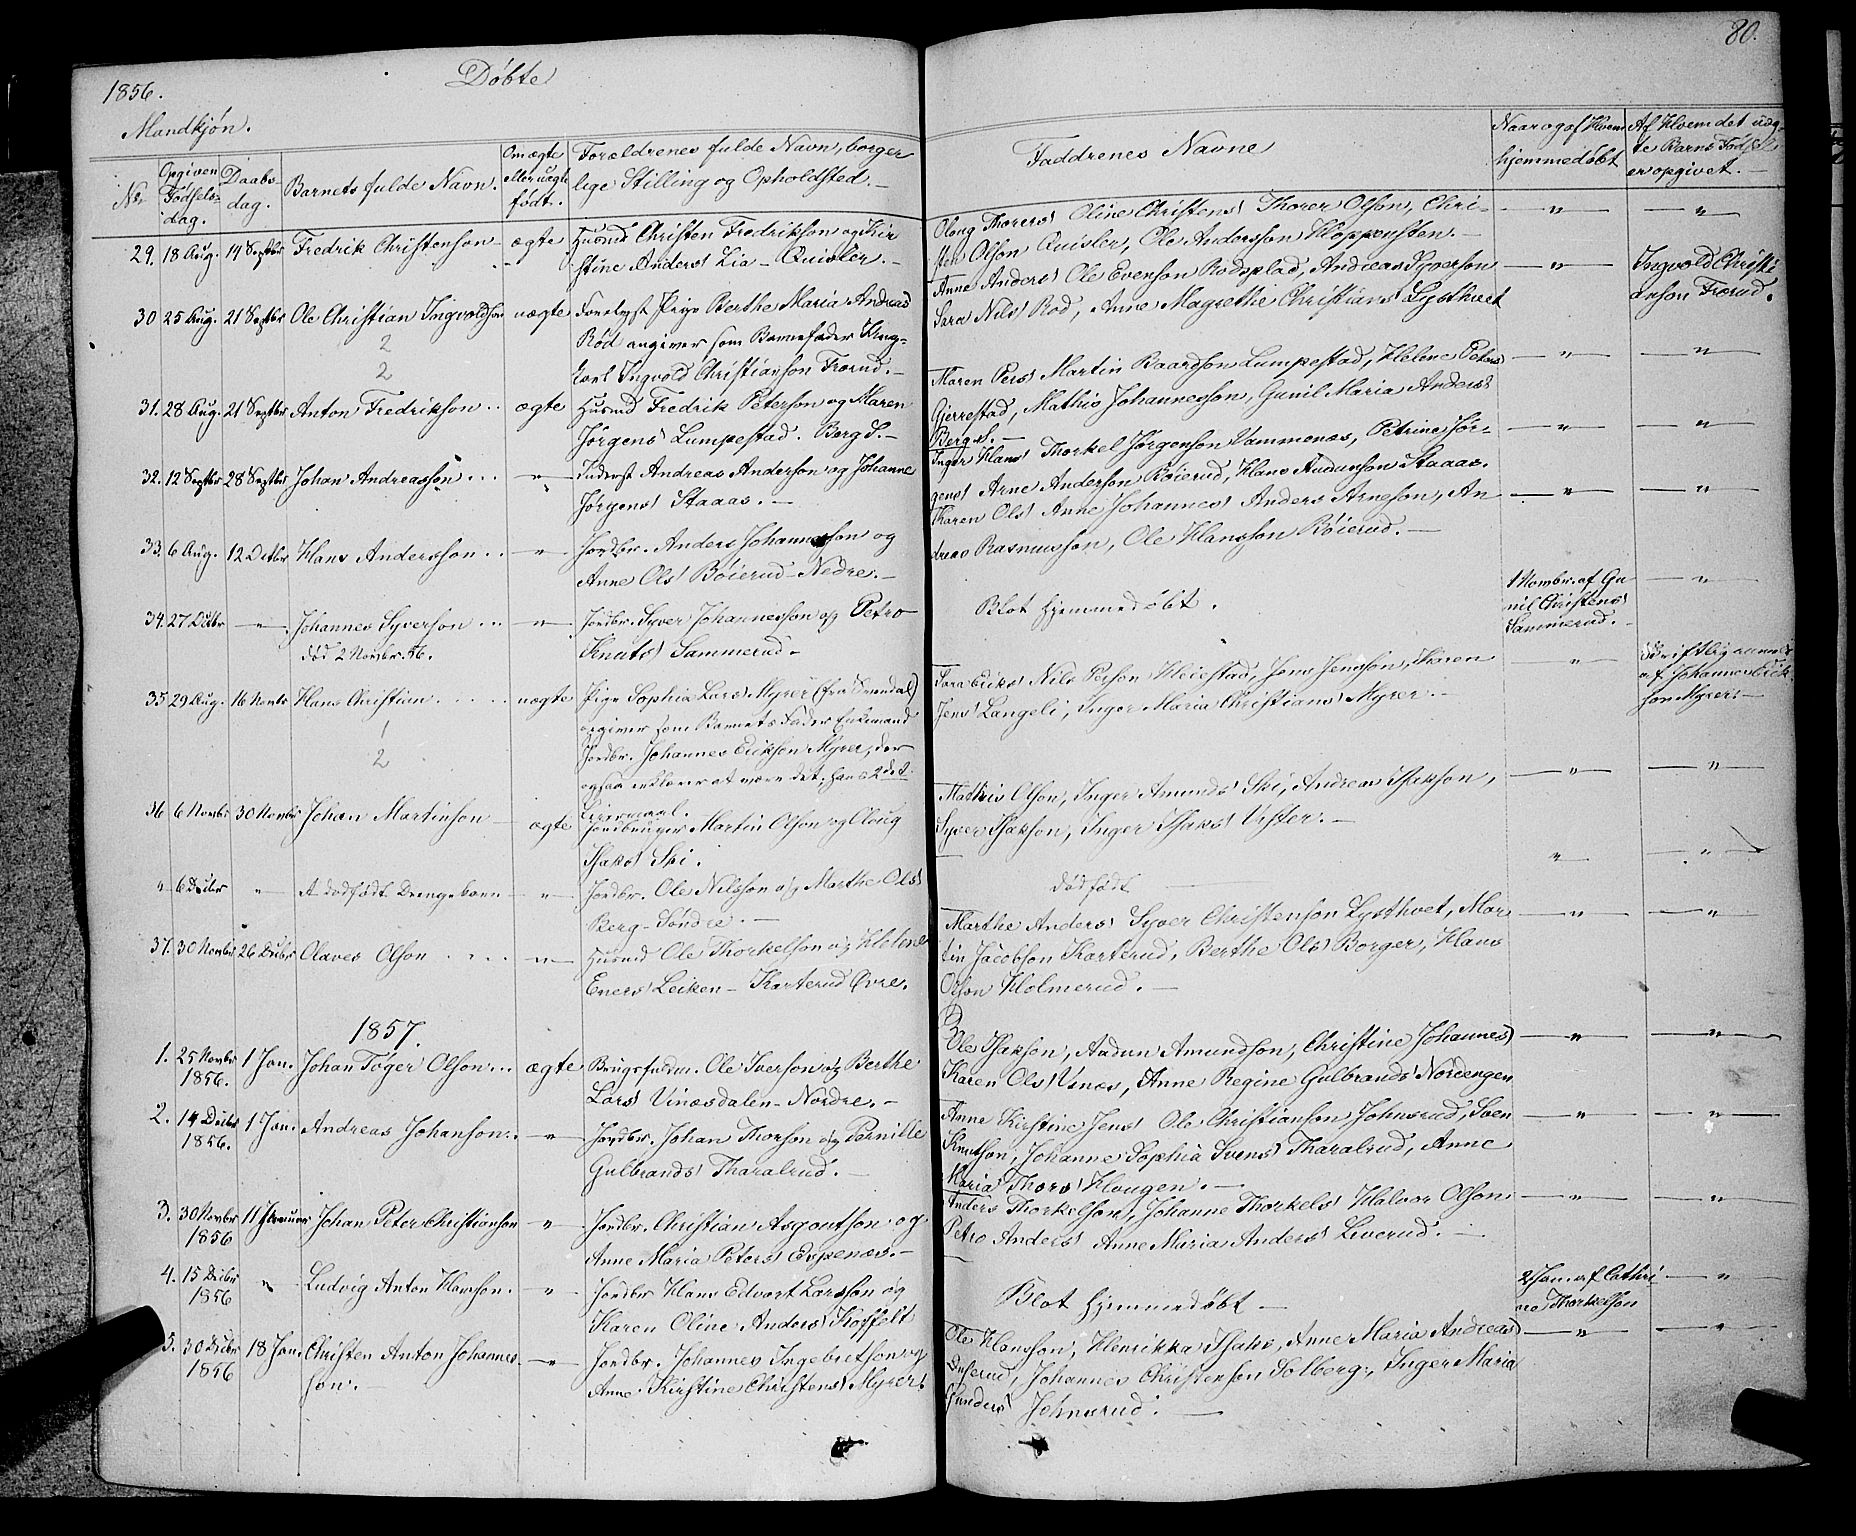 1856.
Døbte
80.
Mandkjøn.
No
Opgiven Fødsels- dag.
Daabs- dag.
Barnets fulde Navn.
Om ægte eller uægte født.
Forældrenes fulde Navn, borger
lige Stilling og Opholdsted. —
Faddrenes Navne
Naar og af Hvem hjemmedøbt
Af Hvem det uæg- te Barns Fødsel er opgivet. —
29. 18 Aug. 14 Septbr Fredrik Christenson — ægte Husmd Christen Fredrikson og Kir
stine Anders Lia — Quisler. —
Oloug Thorers Oline Christens Thorer Olson, Chri-
sten Olson Quisler, Ole Andersson Kloppensten. —
— " — — " —
30 25 Aug. 21 Septbr Ole Christian Ingvoldson uægte Pige Berthe Maria Andreas
2
2
Rød angiver som Barnefader Ung-
karl Ingvold Christianson Frorud. —
Anne Anders Ole Evenson Rodsplad, Andreas Syverson
Sara Nils Rod, Anne Magrethe Christians Lysthvet
— " — Ingvold Christi
anson Frorud.
31. 28 Aug. 21 Septbr Anton Fredrikson .. ægte Husmd Fredrik Peterson og Maren
Jørgens Lumpestad. Berg S. —
Maren Pers Martin Baardson Lumpestad, Helene Peters
Gjerrestad, Mathis Johannesson, Gunil Maria Anders
Berg S. —
— " — — " —
32. 12 Septbr 28 Septbr Johan Andreasson ... — " — Inderst Andreas Anderson og Johanne
Jørgens Staaas. —
Inger Hans Thorkel Jørgenson Vammenæs, Petrine Jør-
gens Arne Anderson Bøierud, Hans Audunson Staaas.
— " — — " —
33. 6 Aug. 12 Octbr Hans Andersson .. — " — Jordbr. Anders Johannesson og
Anne Ols Bøierud — Nedre. —
Karen Ols Anne Johannes Anders Arneson, An
dreas Rasmusson, Ole Hansson Bøierud. —
— " — — " —
34. 27 Octbr — " — Johannes Syverson ... — " — Jordbr. Syver Johannesson og Petro
død 2 Novbr. 56.
Knuts Sammerud —
Blot hjemmedøbt.
1 Novbr. af Gu-
nil Christens
Sammerud. —
— " —
35 29 Aug. 16 Novbr Hans Christian ..... uægte Pige Sophia Lars Myrer (fra
1
2
angiver som Barnets Fader Enkemand
Jordbr. Johannes Erikson Myrer, der
ogsaa erklærer at være det; hans 2det
Leiermaal.
Sara Eriks Nils Person Heiestad, Jens Jensson, Karen
Jens Langeli, Inger Maria Christians Myrer. —
— " — Skriftlig anmeldt
af Johannes Erik
son Myrer. —
36 6 Novbr 30 Novbr Johan Martinson — ægte Jordbruger Martin Olson og Oloug
Isaks Ski.
Mathis Olson, Inger Amunds Ski, Andreas Isakson,
Syver Isakson, Inger Isaks Vister. —
— " — — " —
" 6 Decbr " — Et dødfødt Drengebarn — " — Jordbr. Ole Nilsson og Marthe Ols
Berg — Søndre. —
Dødfødt
" — " —
37. 30 Novbr 26 Decbr Olaves Olson .... — " — Husmd Ole Thorkelson og Helene
Eners Leiken — Karterud Øvre.
Marthe Anders Syver Christenson Lysthvet, Mar
tin Jacobson Karterud, Berthe Ols Borger, Hans
Olson Holmerud. —
— " — — " —
1857.
1. 25 Novbr
1856. 1 Jan. Johan Tøger Olson ... ægte Brugsfuldm. Ole Iverson og Berthe
Lars Vinæsdalen — Nordre. —
Ole Isakson, Audun Amundson, Christine Johannes
Karen Ols Vinæs, Anne Regine Gulbrands Nordengen
— " — "
2. 14 Decbr
1856. 1 Jan. Andreas Johanson .. — " — Jordbr. Johan Thorson og Pernille
Gulbrands Tharalrud. —
Anne Kirstine Jens Ole Christianson Johnsrud, Sven
Knutson, Johanne Sophia Svens Tharalrud, Anne
Maria Thors Haugen. —
— " — — " —
3. 30 Novbr
1856 11 Januar Johan Peter Christianson " — Jordbr. Christian Asgoutson og
Anne Maria Peters Espenæs. —
Anders Thorkelson, Johanne Thorkels Halvor Olson
Petro Anders Anne Maria Anders Liverud. —
— " — — " —
4. 15 Decbr
1856 " Ludvig Anton Hansson. — " — Jordbr Hans Edvart Larsson og
Karen Oline Anders Koffelt
Blot hjemmedøbt —
2 Jan. af Cathri
ne Thorkelson
— " —
5. 30 Decbr
1856 18 Jan. Christen Anton Johannes-
son. —
— " — Jordbr. Johannes Ingebretson og
Anne Kirstine Christens Myrer.
Ole Hansson, Henrikka Isaks, Anne Maria Andreas
Johannes Christenson Solberg, Inger Maria
Gunders Johnsrud. —
— " — — " —